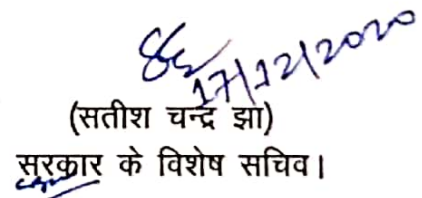 17/12/2020
(सतीश चन्द्र झा)
सरकार के विशेष सचिव।